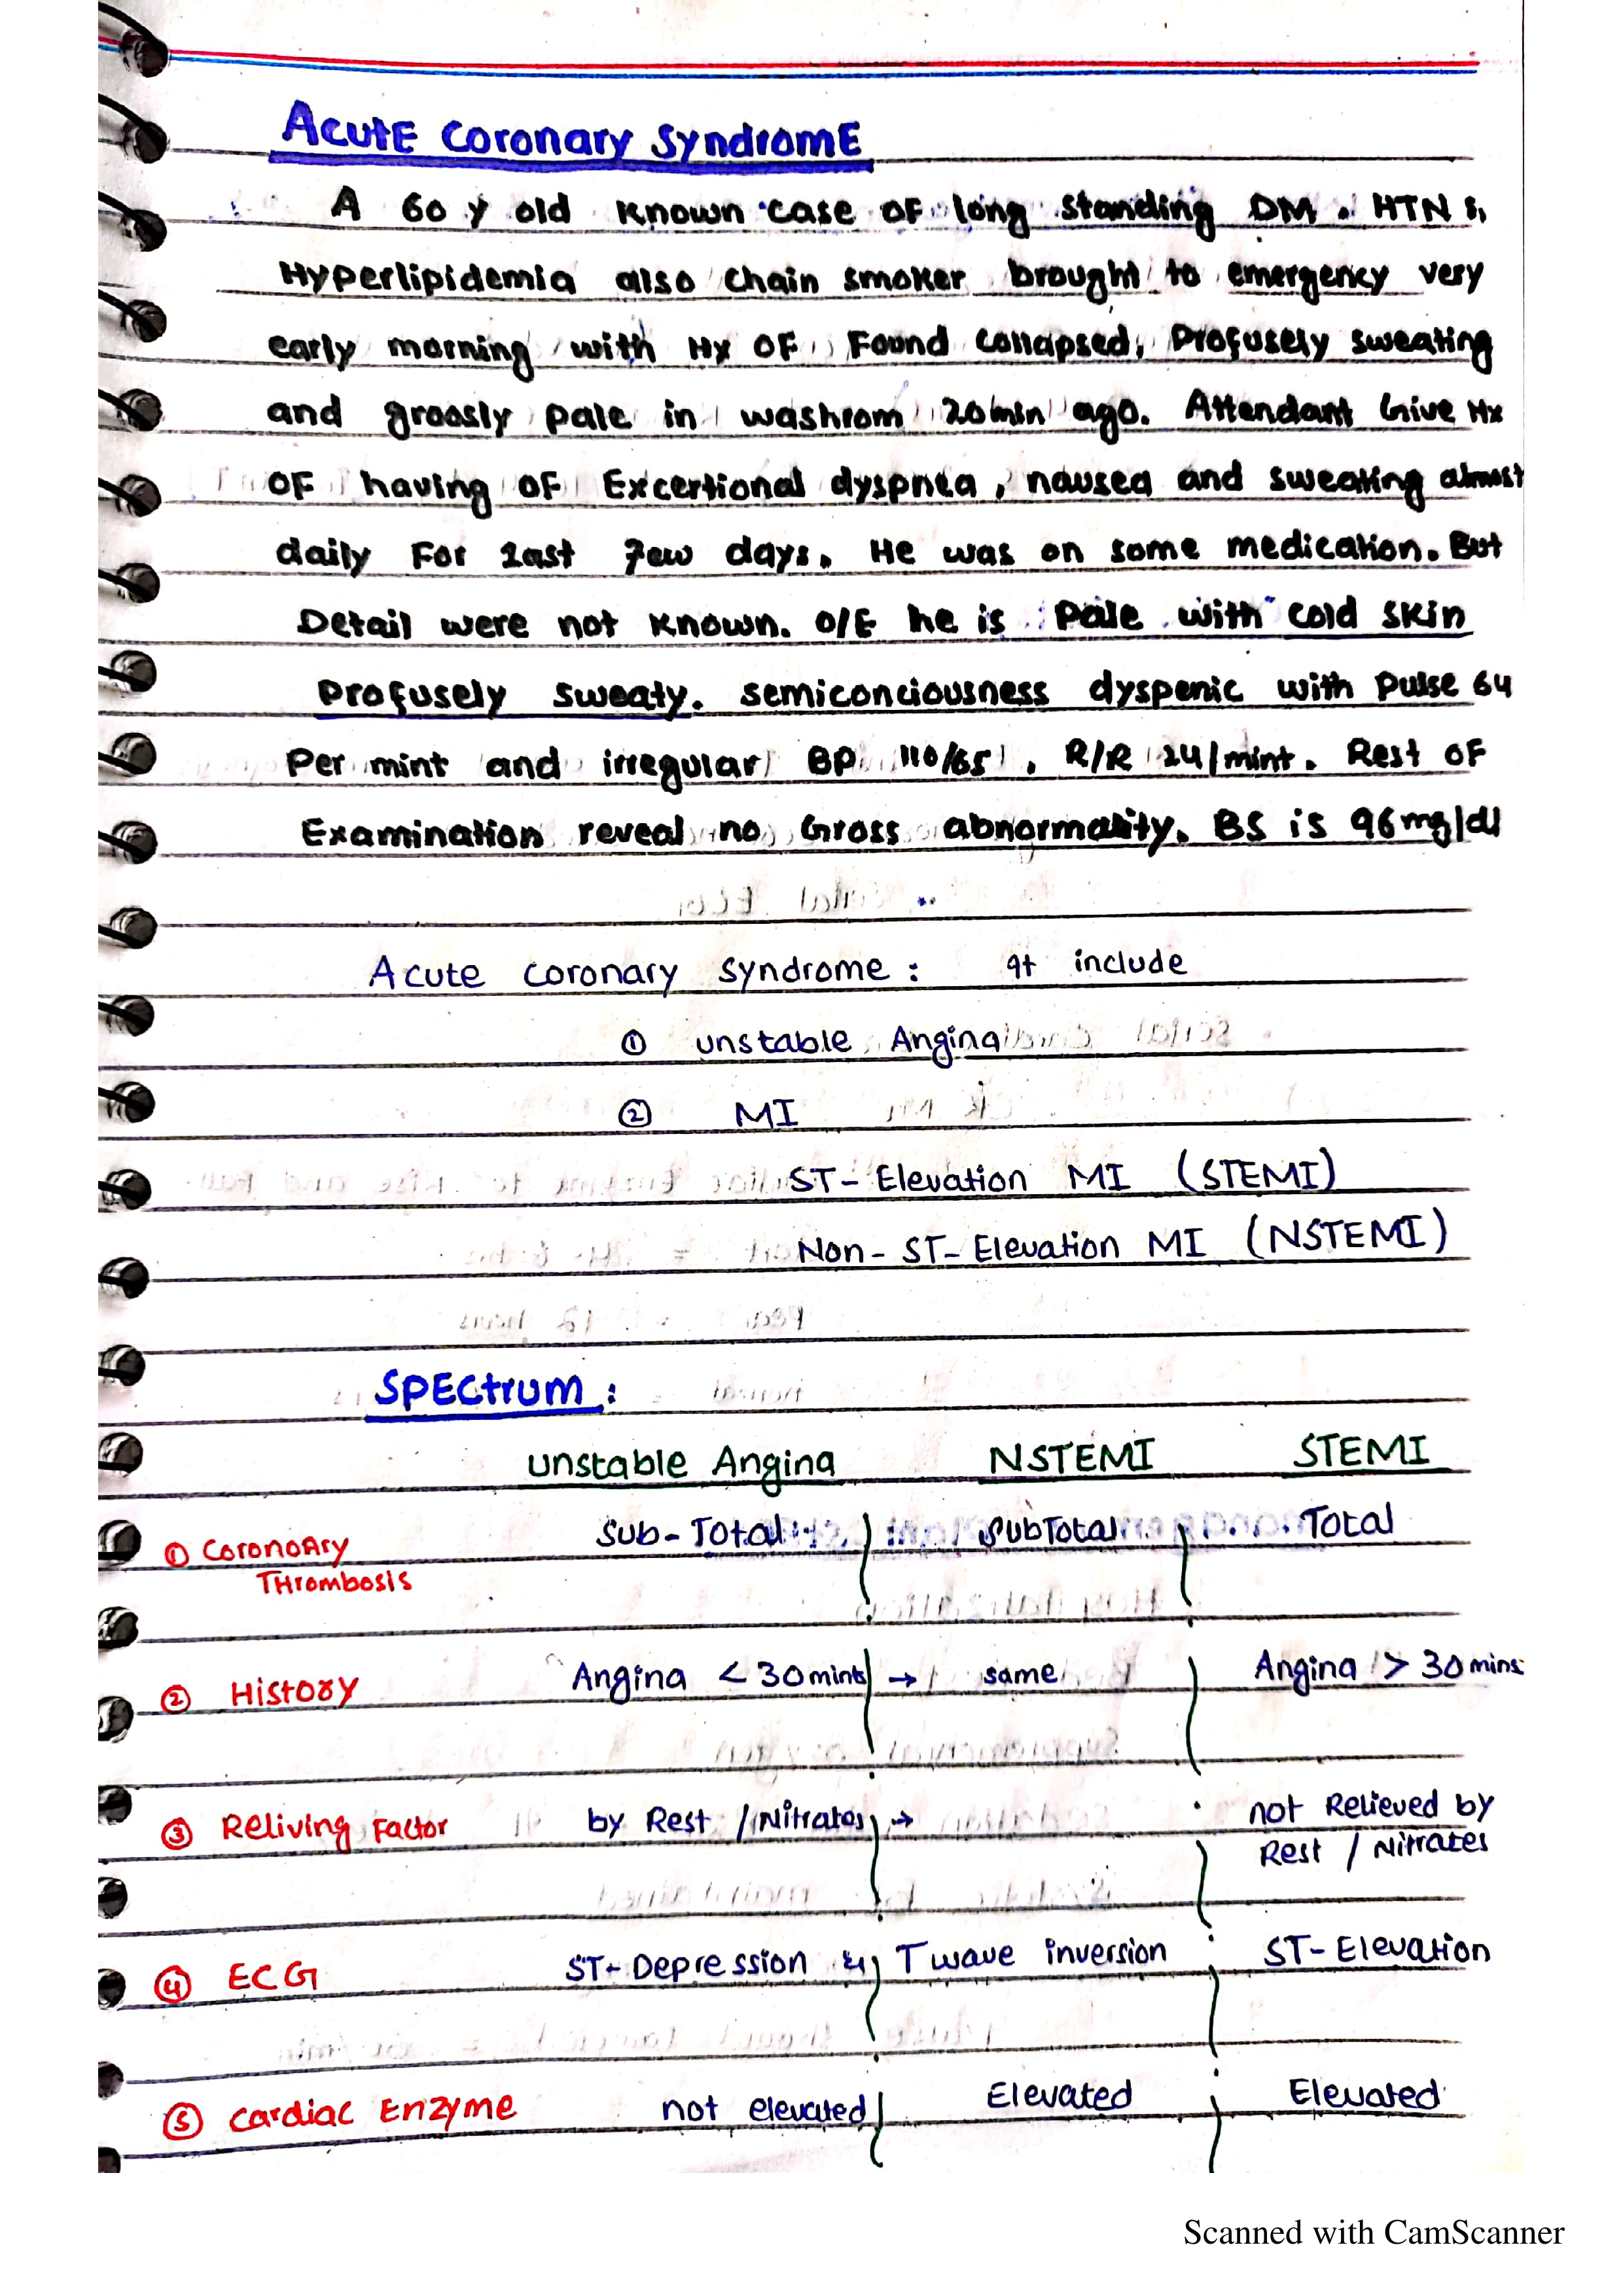 Acute Coronary Syndrome
A 60 y old known case of long standing DM. HTN &
Hyperlipidemia also chain smoker brought to emergency very
early morning with Hx of Found collapsed, Profusely sweating
and groosly pale in washrom 20min ago. Attendant Give Hx
of having of Excertional dyspnea, nausea and sweating almost
daily For last few days. He was on some medication. But
Detail were not known. O/E he is pale with cold skin
Profusely sweaty. semiconciousness dyspenic with pulse 64
Per mint and irregular BP 110/65, R/R 24/mint. Rest of
Examination reveal no Gross abnormality. BS is 96mg/dl
Acute coronary syndrome : It include
① unstable Angina
② MI
ST-Elevation MI (STEMI)
Non-ST-Elevation MI (NSTEMI)
SPECtrum :
unstable Angina NSTEMI STEMI
① CoronoAry Sub-Total SubTotal Total
THrombosis
② History Angina < 30mints → same Angina > 30mins
③ Reliving Factor by Rest / Nitrates → not Relieved by
Rest / Nitrates
④ ECG ST-Depression & T wave inversion ST-Elevation
⑤ Cardiac Enzyme not elevated Elevated Elevated
Scanned with CamScanner